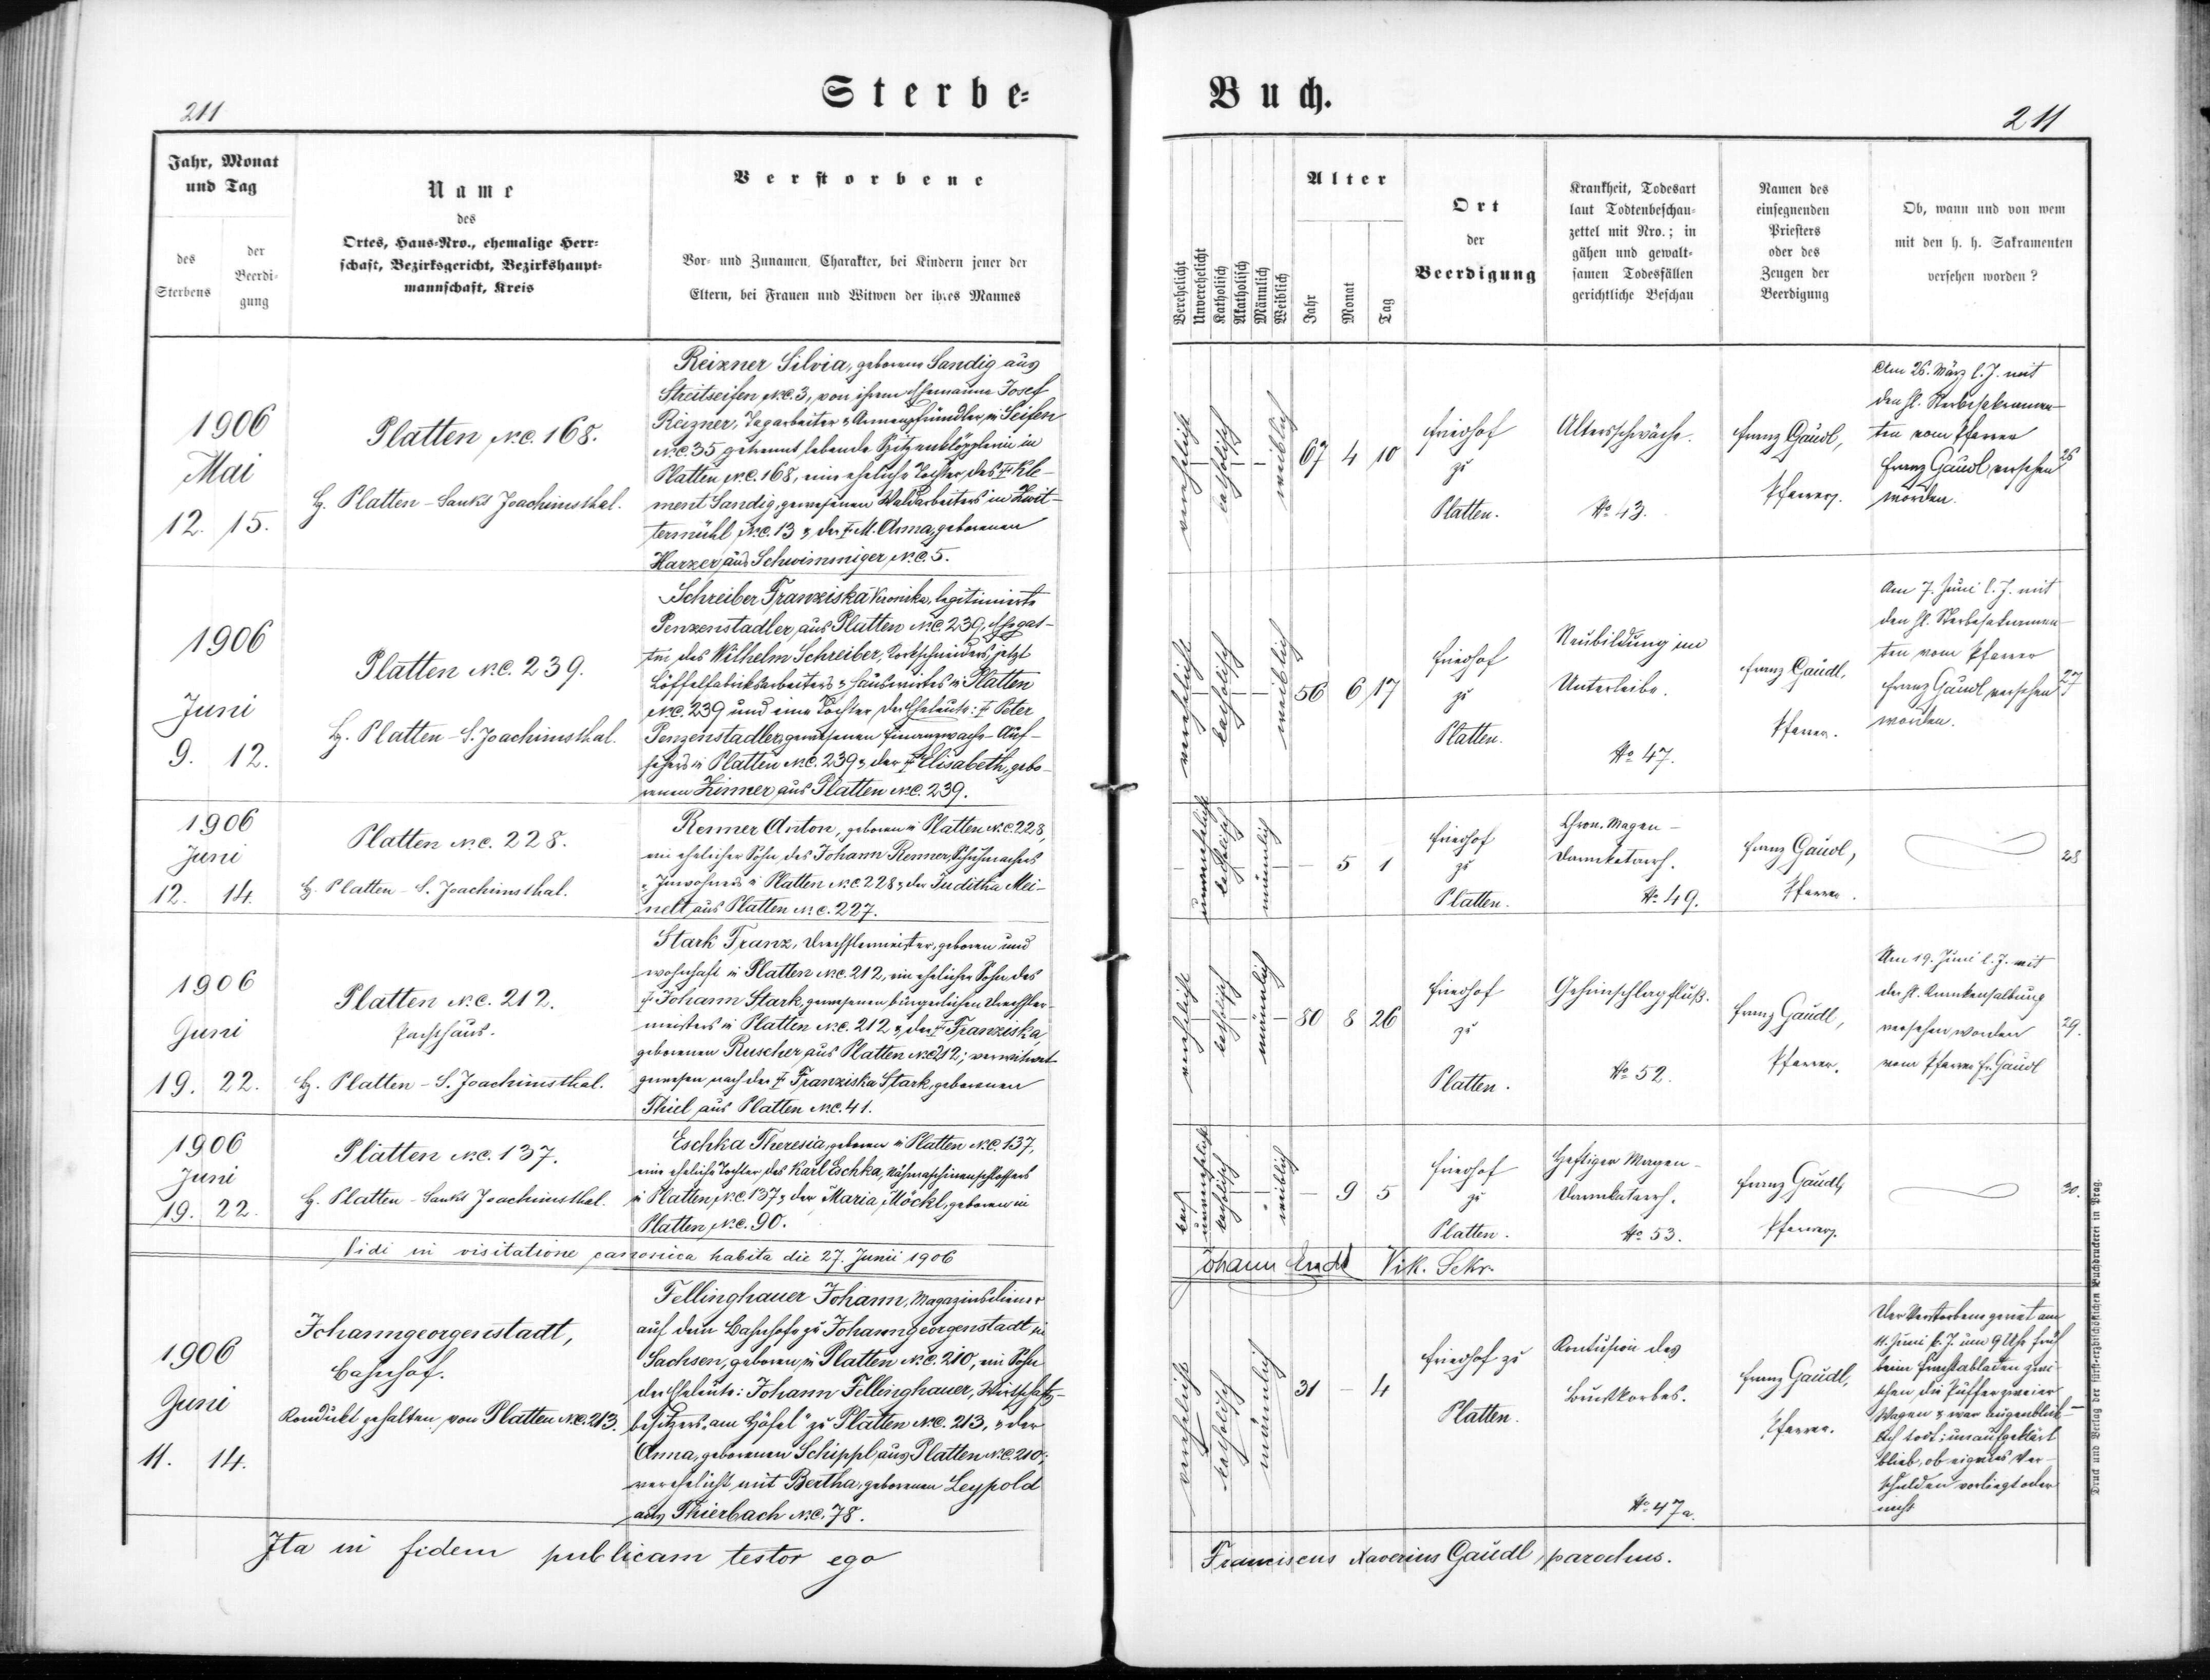 211
Sterbe=
Jahr, Monat
und Tag
des
Sterbens
der
Beerdi=
gung
Name
des
Ortes, Haus-Nro., ehemalige Herr=
schaft, Bezirksgericht, Bezirkshaupt=
mannschaft, Kreis
Verstorbene
Vor- und Zunamen, Charakter, bei Kindern jener der
Eltern, bei Frauen und Witwen der ihres Mannes
1906
Mai
12. 15.
Platten N.C. 168.
H. Platten - Sankt Joachimsthal.
Reizner Silvia, geborene Sandig aus
Streitseifen N.C. 3, von ihrem Ehemanne Josef
Reizner, Tagarbeiter u. Armenpfründler, in Seifen
N.C. 35 getrennt lebende Spitzenklöpplerin in
Platten N.C. 168, eine eheliche Tochter des † Kle-
ment Sandig, gewesenen Waldarbeiters in Zwit-
termühl N.C. 13 u. der † M. Anna, geborenen
Harzer aus Schwimmiger N.C. 5.
1906
Juni
9. 12.
Platten N.C. 239.
H. Platten - S. Joachimsthal.
Schreiber Franziska Veronika, legitimierte
Penzenstadler, aus Platten N.C. 239, Ehegat-
tin des Wilhelm Schreiber, Korkschneiders, jetzt
Löffelfabriksarbeiters u. Hauswirtes in Platten
N.C. 239 und eine Tochter der Eheleute: † Peter
Penzenstadler, gewesenen Finanzwach-Auf-
sehers in Platten N.C. 239 u. der † Elisabeth, gebo-
renen Zinner aus Platten N.C. 239.
1906
Juni
12. 14.
Platten N.C. 228.
H. Platten - S. Joachimsthal.
Renner Anton, geboren in Platten N.C. 228,
ein ehelicher Sohn des Johann Renner, Schuhmachers
u. Inwohners in Platten N.C. 228 u. der Juditha Mei-
nelt aus Platten N.C. 227.
1906
Juni
19. 22.
Platten N.C. 212.
H. Platten - S. Joachimsthal.
Stark Franz, Drechslermeister, geboren und
wohnhaft in Platten N.C. 212, ein ehelicher Sohn des
† Johann Stark, gewesenen bürgerlichen Drechsler-
meisters in Platten N.C. 212 u. der † Franziska,
geborenen Ruscher aus Platten N.C. 212; verwitwet
gewesen nach der † Franziska Stark, geborenen
Thiel aus Platten N.C. 41.
1906
Juni
19. 22.
Platten N.C. 137.
H. Platten - Sankt Joachimsthal.
Eschka Theresia, geboren in Platten N.C. 137,
eine eheliche Tochter des Karl Eschka, Nähmaschinenschlossers
in Platten, N.C. 137 u. der Maria Möckl, geboren in
Platten N.C. 90.
Vidi in visitatione canonica habita die 27. Junii 1906
1906
Juni
11. 14.
Johanngeorgenstadt,
Bahnhof.
Kondukt gehalten von Platten N.C. 213.
Fellinghauer Johann, Magazinsdiener
auf dem Bahnhofe zu Johanngeorgenstadt in
Sachsen, geboren in Platten N.C. 210, ein Sohn
der Eheleute: Johann Fellinghauer, Wirtschafts-
besitzers "am Höfel" zu Platten N.C. 213, u. der
Anna, geborenen Schippl aus Platten N.C. 210;
verehelicht mit Bertha, geborenen Leypold
aus Thierbach N.C. 78.
Ita in fidem publicam testor ego
Buch.
211
Verehelicht
Unverehelicht
Katholisch
Akatholisch
Männlich
Weiblich
Alter
Jahr
Monat
Tag
Ort
der
Beerdigung
Krankheit, Todesart
laut Todtenbeschau=
zettel mit Nro.; in
gähen und gewalt=
samen Todesfällen
gerichtliche Beschau
Namen des
einsegnenden
Priesters
oder des
Zeugen der
Beerdigung
Ob, wann und von wem
mit den h. h. Sakramenten
versehen worden?
verehelicht
katholisch
weiblich
67 4 10
Friedhof
zu
Platten.
Altersschwäche.
No 43.
Franz Gaudl,
Pfarrer.
Am 26. März l. J. mit
den hl. Sterbesakramen-
ten vom Pfarrer
Franz Gaudl versehen
worden.
26
verehelicht
katholisch
weiblich
56 6 17
Friedhof
zu
Platten.
Neubildung im
Unterleibe.
No 47.
Franz Gaudl,
Pfarrer.
Am 7. Juni l. J. mit
den hl. Sterbesakramen-
ten vom Pfarrer
Franz Gaudl versehen
worden.
27
unverehelicht
katholisch
männlich
- 5 1
Friedhof
zu
Platten.
Chron. Magen-
Darmkatarrh.
No 49.
Franz Gaudl,
Pfarrer.
28
verehelicht
katholisch
männlich
80 8 26
Friedhof
zu
Platten.
Gehirnschlagfluß.
No 52.
Franz Gaudl,
Pfarrer.
Am 19. Juni l. J. mit
der hl. Krankensalbung
versehen worden
vom Pfarrer Fr. Gaudl
29.
unverehelicht
katholisch
weiblich
- 9 5
Friedhof
zu
Platten.
Heftiger Magen-
Darmkatarrh.
No 53.
Franz Gaudl,
Pfarrer.
30.
Johann Vik. Sekr.
verehelicht
katholisch
männlich
31 - 4
Friedhof zu
Platten.
Kontusion des
Brustkorbes.
No 47a.
Franz Gaudl,
Pfarrer.
Der Verstorbene geriet am
11. Juni l. J. um 9 Uhr früh
beim Frachtabladen zwi-
schen die Puffer zweier
Wagen u. war augenblick-
lich todt; unaufgeklärt
blieb, ob eigenes Ver-
schulden vorliegt oder
nicht
Franciscus Xaverius Gaudl, parochus.
Druck und Verlag der fürst-erzbischöflichen Buchdruckerei in Prag.